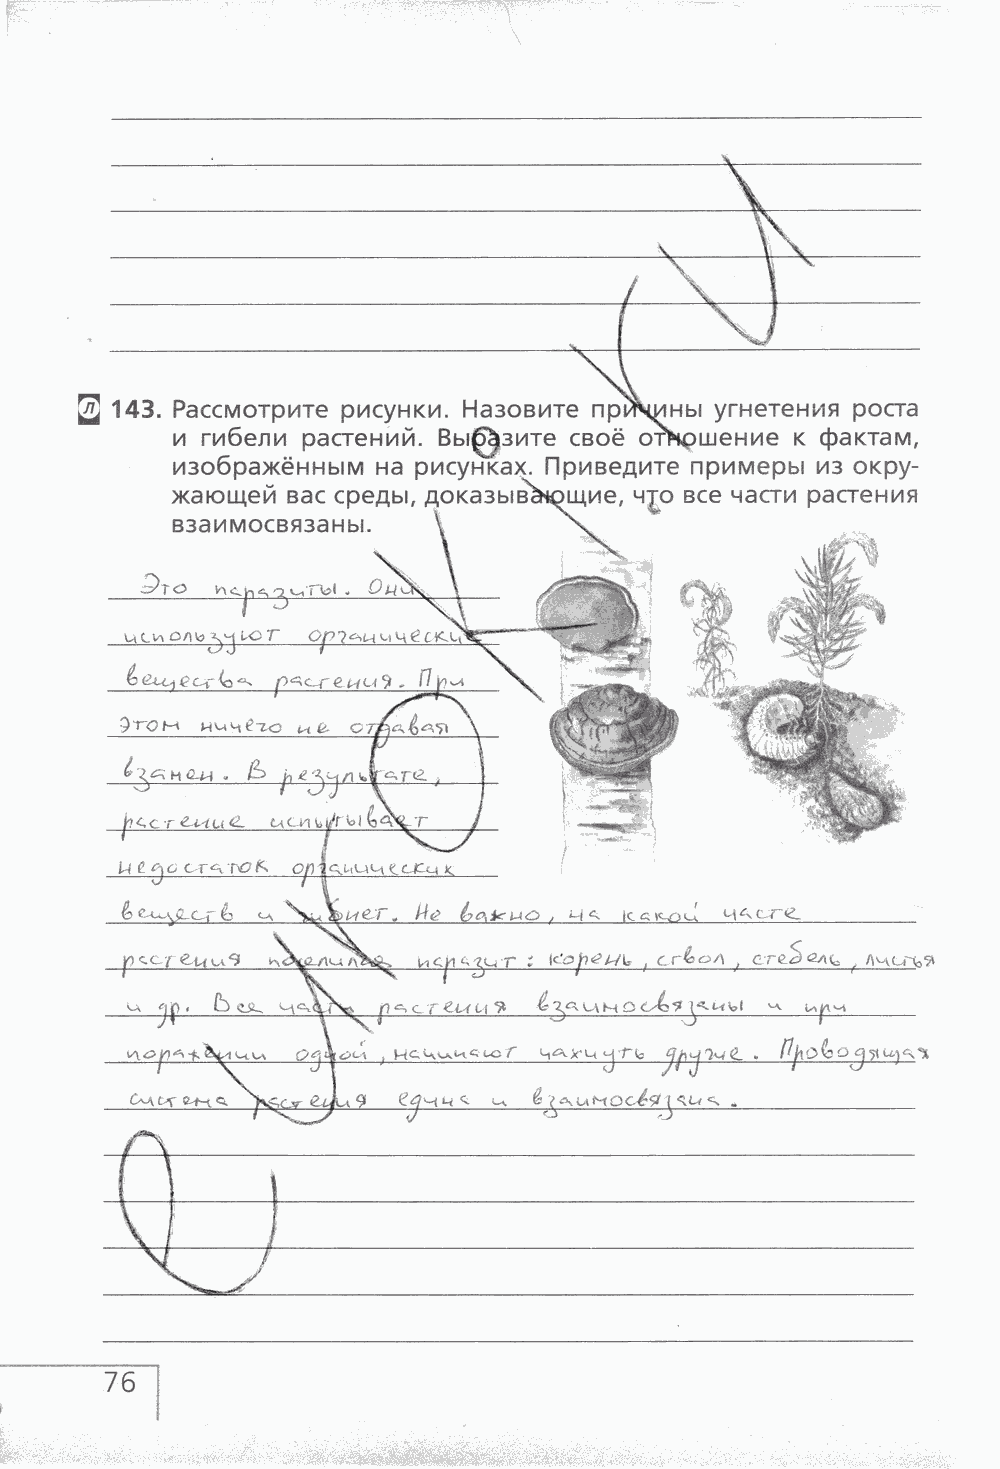 Л 143. Рассмотрите рисунки. Назовите причины угнетения роста
и гибели растений. Выразите своё отношение к фактам,
изображённым на рисунках. Приведите примеры из окру-
жающей вас среды, доказывающие, что все части растения
взаимосвязаны.
Это паразиты. Они
используют органические
вещества растения. При
этом ничего не отдавая
взамен. В результате,
растение испытывает
недостаток органических
веществ и гибнет. Не важно, на какой часте
растения поселился паразит: корень, ствол, стебель, листья
и др. Все части растения взаимосвязаны и при
поражении одной, начинают чахнуть другие. Проводящая
система растения едина и взаимосвязана.
76
euroki